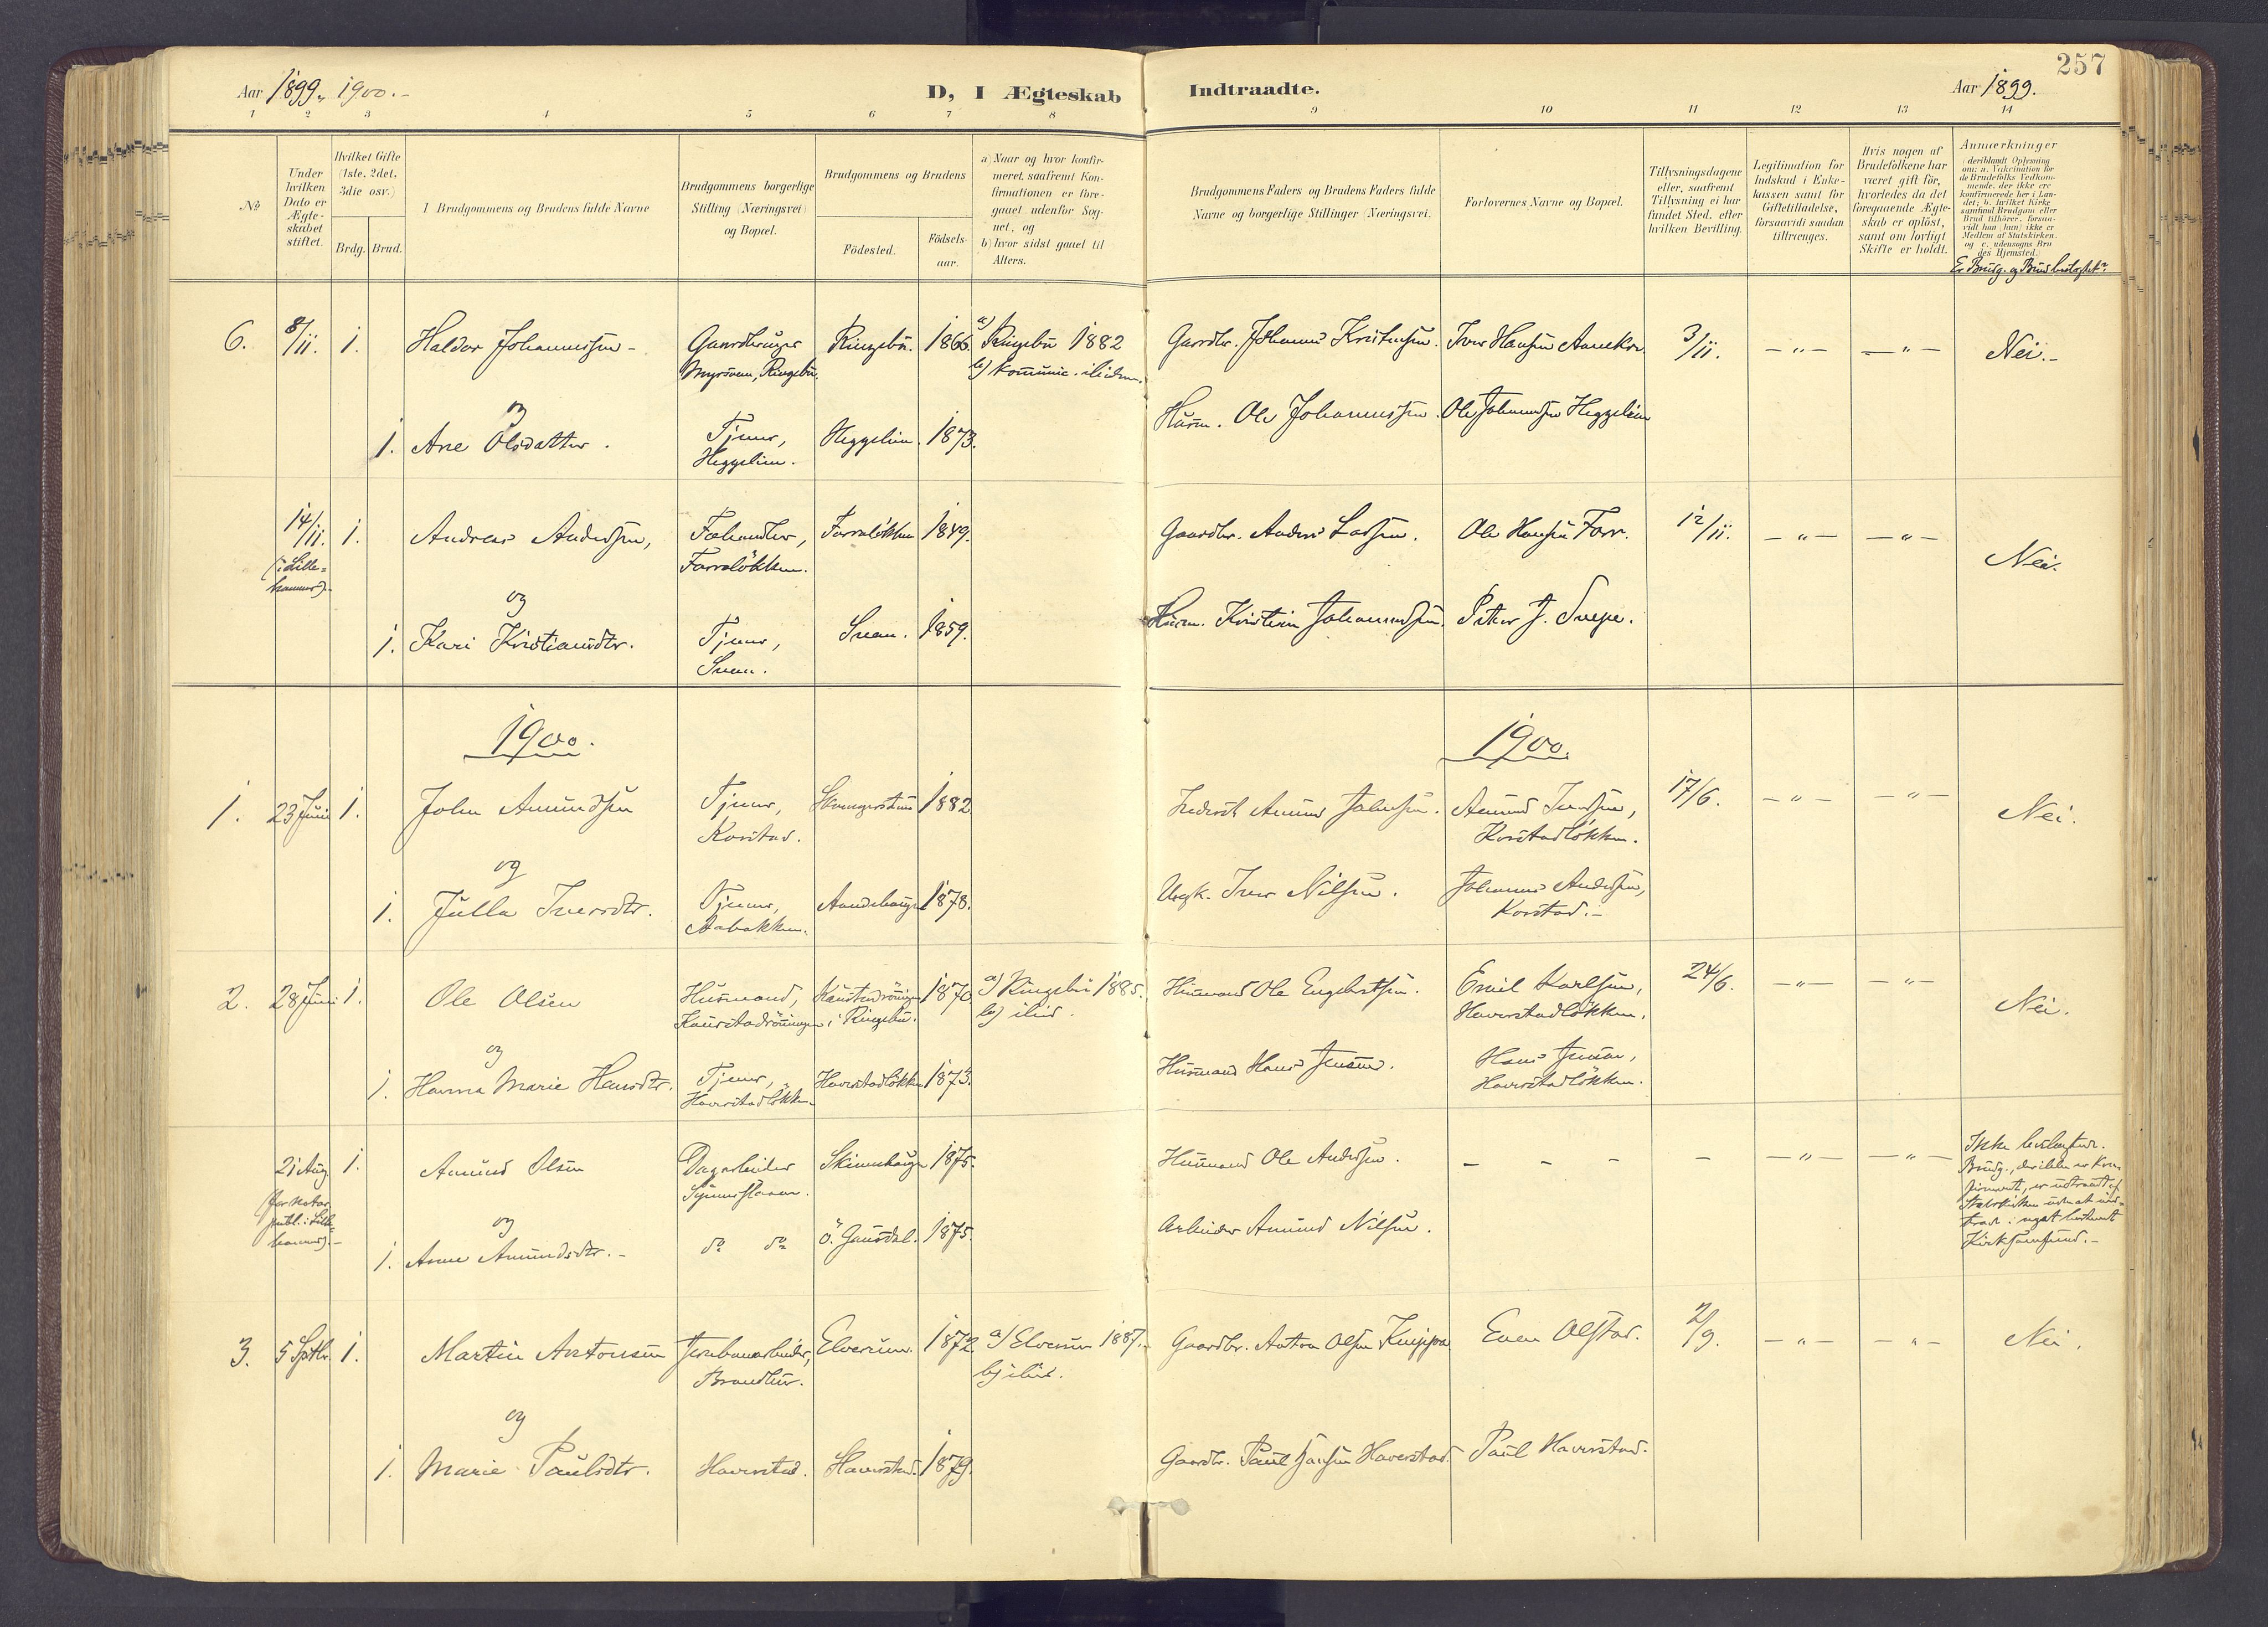 257
Aar 1899, 1900.-
D, I Ægteskab Indtraadte.
Aar 1899.
1 2 3 4 5 6 7 8 9 10 11 12 13 14
No
Under
hvilken
Dato er
Ægte-
skabet
stiftet.
Hvilket Gifte
(1ste, 2det,
3die osv.)
Brdg. Brud.
Brudgommens og Brudens fulde Navne
Brudgommens borgerlige
Stilling (Næringsvei)
og Bopæl.
Brudgommens og Brudens
Födested.
Födsels-
aar.
a) Naar og hvor konfir-
meret, saafremt Kon-
firmationen er fore-
gaaet udenfor Sog-
net, og
b) hvor sidst gaaet til
Alters.
Brudgommens Faders og Brudens Faders fulde
Navne og borgerlige Stillinger (Næringsvei)
Forlovernes Navne og Bopæl.
Tillysningsdagene
eller, saafremt
Tillysning ei har
fundet Sted, efter
hvilken Bevilling.
Legitimation for
Indskud i Enke-
kassen samt for
Giftetilladelse,
forsaavidt saadan
tiltrænges.
Hvis nogen af
Brudefolkene har
været gift för,
hvorledes da det
foregaaende Ægte-
skab er oplöst,
samt om lovligt
Skifte er holdt.
Anmærkninger
(deriblandt Oplysning
om: a. Vakcination for
de Brudefolks Vedkom-
mende, der ikke ere
konfirmerede her i Lan-
det; b. hvilket Kirke
samfund Brudgom eller
Brud tilhörer, forsaa-
vidt han (hun) ikke er
Medlem af Statskirken,
og c. udensogns Bru
des Hjemsted.
Er Brudg. og Brud beslægtet?
6. 8/11. 1. Haldor Johannessen - Gaardbruger Ringebu. 1866. a) Ringebu 1882 Gaardbr. Johannes Kristensen. Iver Hansen 3/11. - " - - " - Nei.-
Ringebu. b)
og
1. Ane Olsdatter. Tjener, Heggelien. 1873. Husm. Ole Johannessen. Ole Johannessen Heggelien
Heggelien.
14/11. 1. Andreas Andersen, Fæhandler, Farralökken 1849. Gaardbr. Anders Larsen. Ole Hansen Forr. 12/11. - " - - " - Nei.
(i Lille-
hammer).-
Farralökken.
og
1. Kari Kristiansdtr. Tjener, Sveen. 1859. Husm. Kristian Johannessen. Peter J. Svepe.
Sveen.
1900. 1900.
1. 23 Juni 1. John Amundsen Tjener, 1882. Inderst Amund Johnsen. Amund Iversen, 17/6. - " - - " - Nei.
Korstad. Korstadlökken.
og
1. Julla Iversdtr. Tjener, 1878. Ungk. Iver Nilsen. Johannes Andersen,
Aabakken. Korstad.-
2. 28 Juni 1. Ole Olsen Husmand, 1870. a) Ringebu 1885. Husmand Ole Engebretsen. Emil Karlsen, 24/6. - " - - " - Nei.
i Ringebu. b) ilid. Haverstadlökken.
og
1. Hanna Marie Hansdtr. Tjener, Haverstadlökken 1873. Husmand Hans Jensen. Hans Jensen,
Haverstadlökken. Haverstadlökken.
21 Aug. 1. Amund Olsen Dagarbeider 1875. Husmand Ole Andersen. - - - - - " - - " - Ikke beslægtede.
(for notar. Brudg., der ikke er kon-
publ. i Lille- firmeret, er udtraadt af
hammer).- Statskirken uden at ind-
og træde i noget bestemt
1. Anne Amundsdtr.- do do Ö. Gausdal. 1875. Arbeider Amund Nilsen. Kirkesamfund.-
3. 5 Sptbr. 1. Martin Antonsen Jernbanearbeider, Elverum. 1872. a) Elverum 1887.- Gaardbr. Anton Olsen Even Olstad. 2/9. - " - - " - Nei.
b) ilid.
og
1. Marie Paulsdtr. Haverstad. Haverstad. 1879. Gaardbr. Paul Hansen Haverstad. Paul Haverstad.